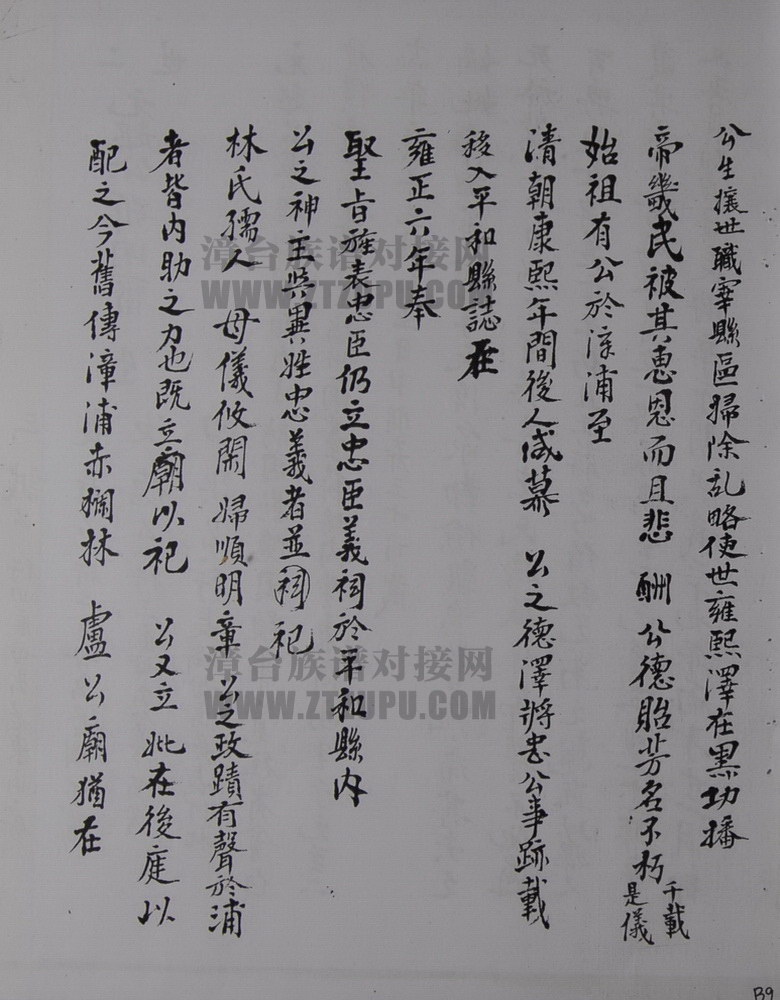 公生攘世職宰縣區掃除乱略使世雍熙澤在黑功播
帝畿民被其恵恩而且悲 酬公德貽芳名不朽 千載是儀
始祖有公於漳浦至
清朝康熙年間後人咸慕 公之德澤將書公事跡載
移入平和縣誌在
雍正六年奉
聖旨旌表忠臣仍立忠臣義祠於平和縣内
公之神主與異姓忠義者並祠祀
林氏孺人 母儀攸閑婦順明章公之政蹟有聲於浦
者皆内助之力也既立廟以祀 公又立妣在後庭以
配之今舊傳漳浦赤獺林 盧公廟猶在
漳台族谱对接网
WWW.ZTZUPU.COM
漳台族谱对接网
WWW.ZTZUPU.COM
B9